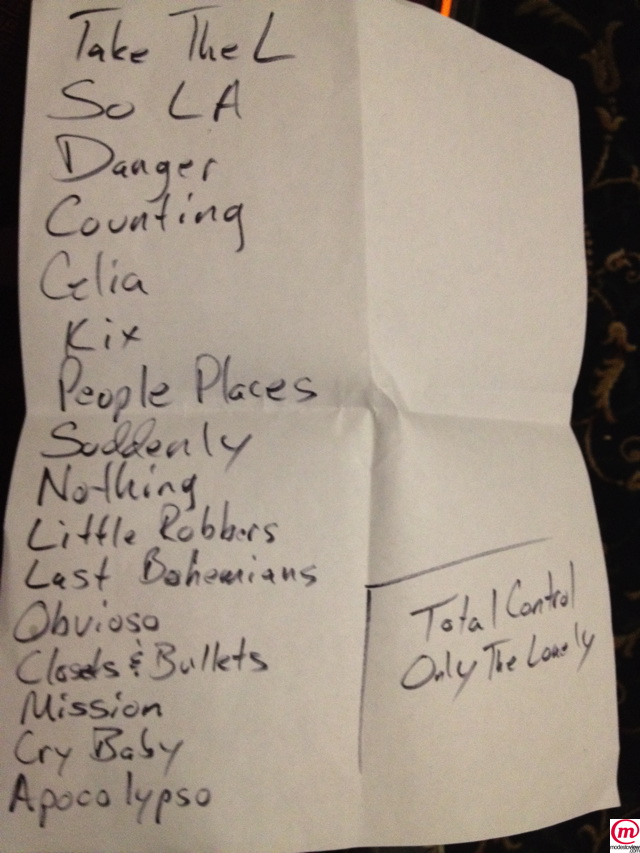 Take The L
So LA
Danger
Counting
Celia
Kix
People Places
Suddenly
Nothing
Little Robbers
Last Bohemians
Obvioso
Closets & Bullets
Mission
Cry Baby
Apocalypso
Total Control
Only The Lonely
m
modestoview
.com